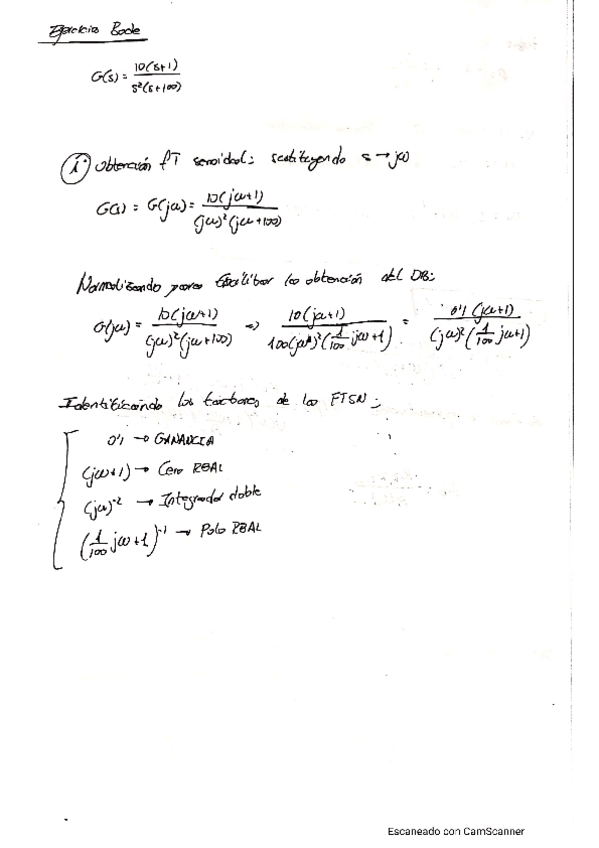 Ejercicio Bode
G(s) = 10(s+1) / s²(s+100)
① Obtención FT senoidal: sustituyendo s → jω
G(s) = G(jω) = 10(jω+1) / (jω)²(jω+100)
Normalizando para facilitar la obtención del DB:
G(jω) = 10(jω+1) / (jω)²(jω+100) => 10(jω+1) / 100(jω)²(1/100 jω+1) = 0'1 (jω+1) / (jω)²(1/100 jω+1)
Identificando los factores de la FTSN:
0'1 → GANANCIA
(jω+1) → Cero REAL
(jω)⁻² → Integrador doble
(1/100 jω+1)⁻¹ → Polo REAL
Escaneado con CamScanner